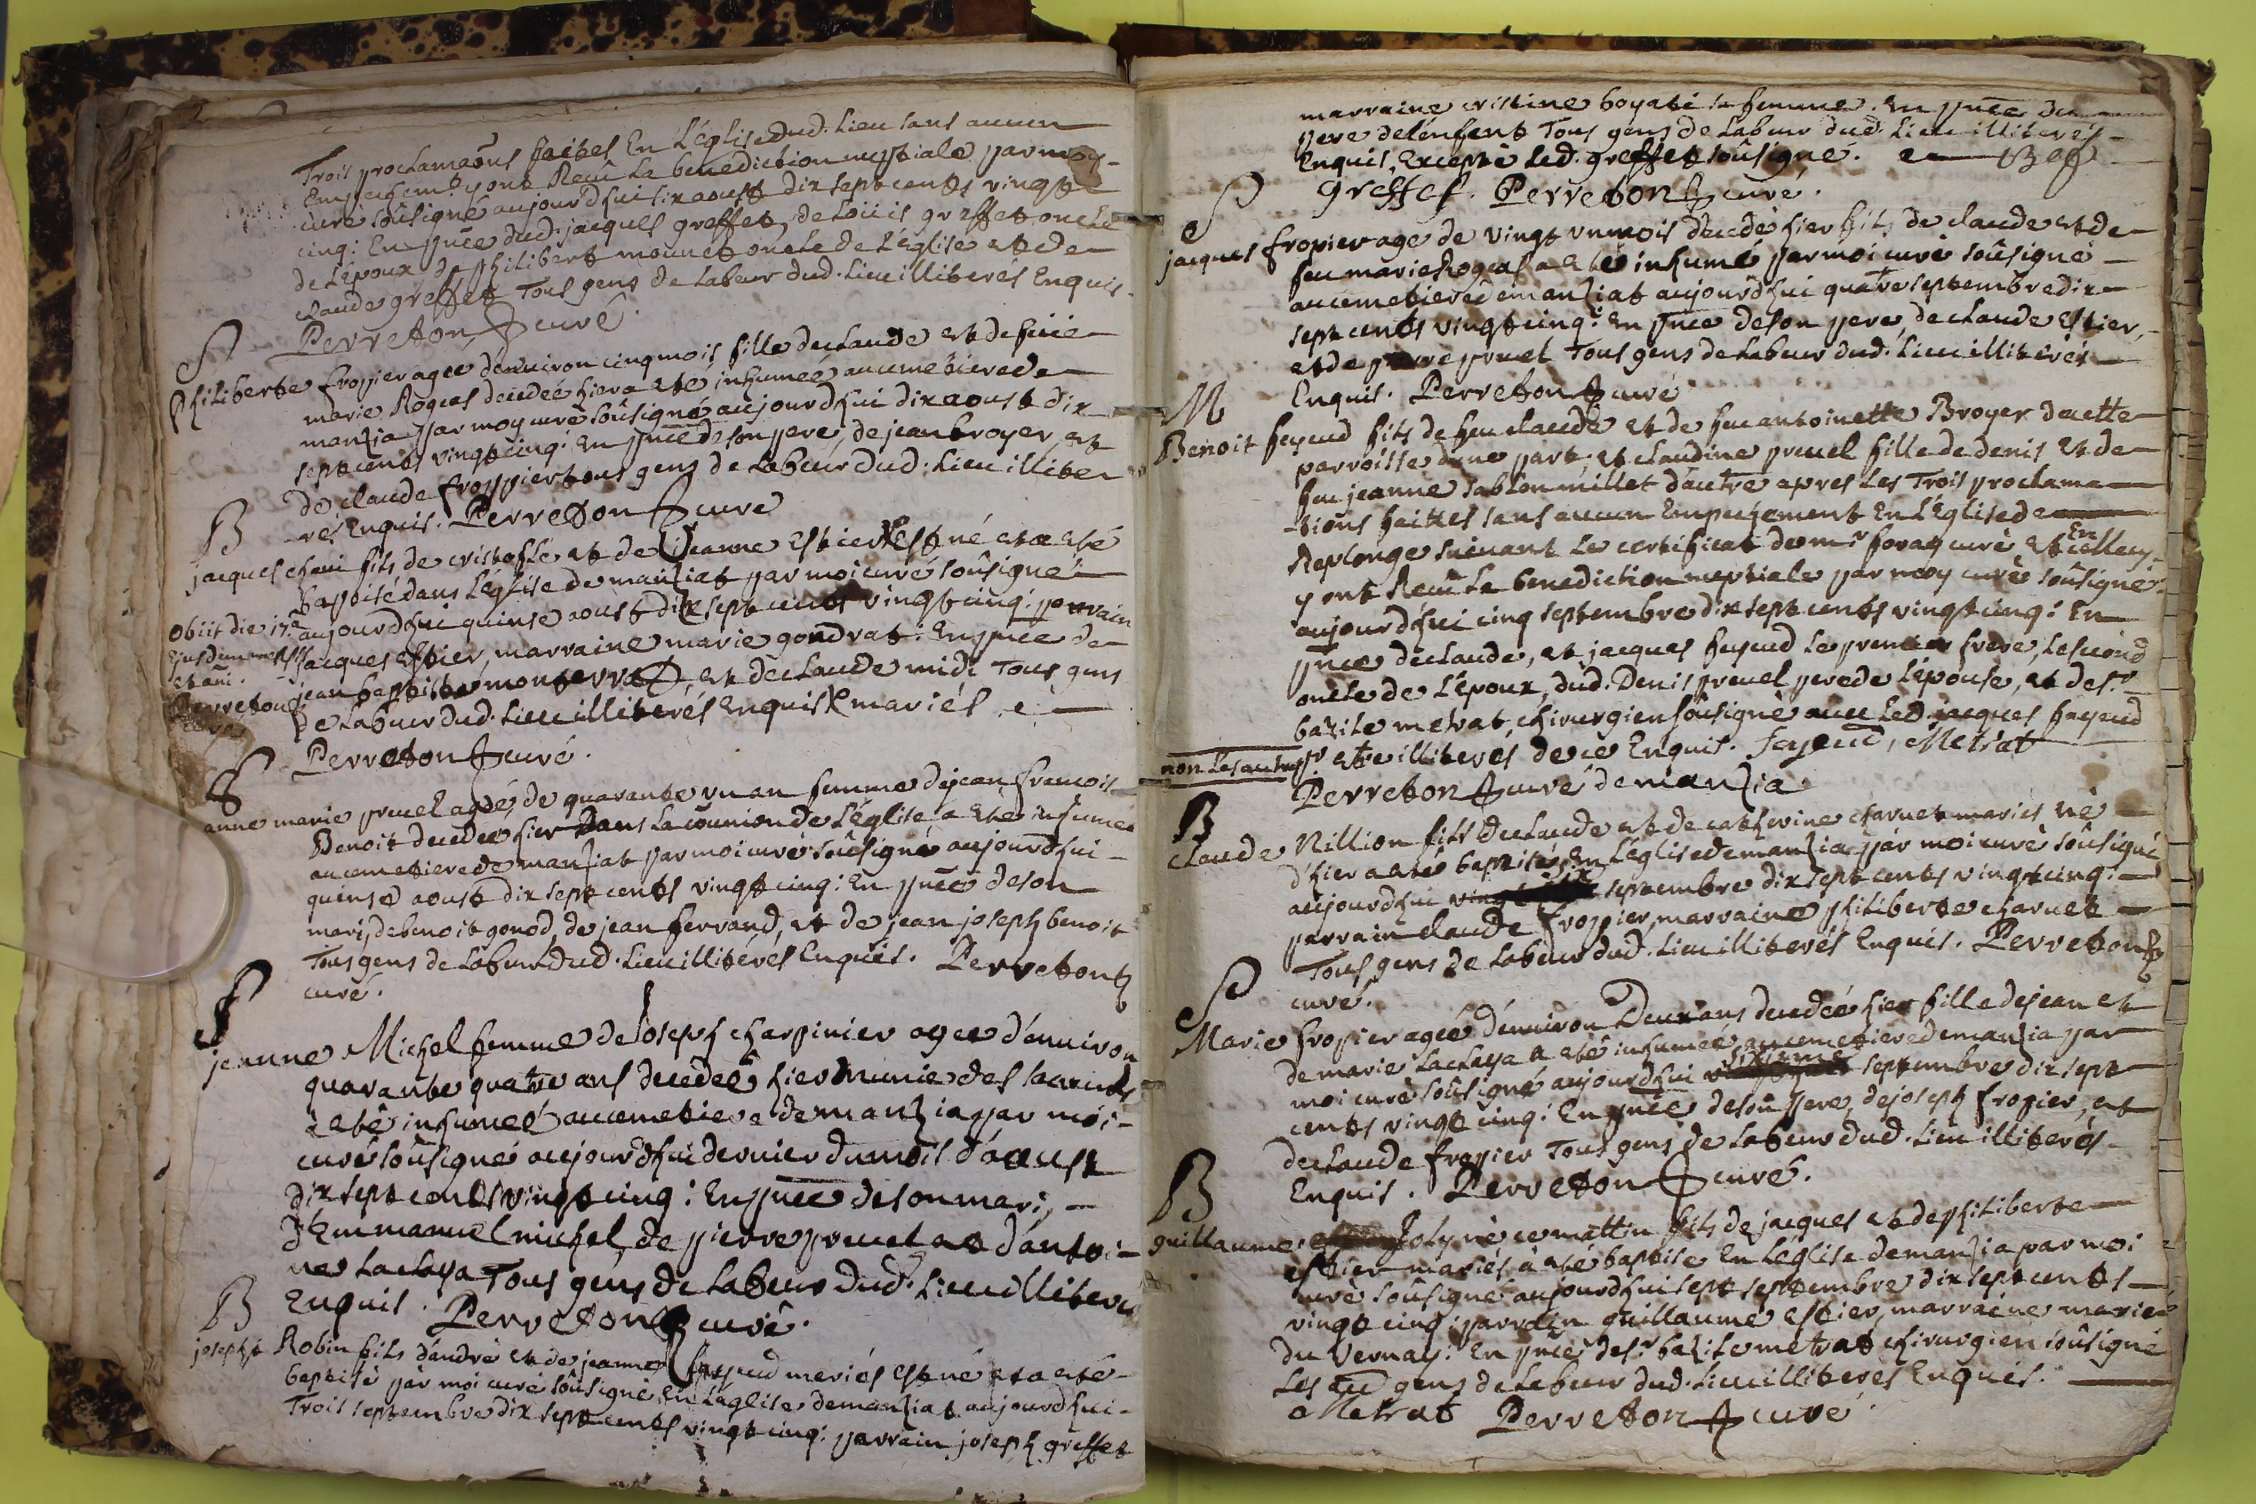 Trois proclamaõns faites En L'Eglise dud. Lieu sans aucun
Empechemt. y ont Recû La benediction nuptiale par moy
curé soûsigné aujourd'hui six aoust dix sept cents vingt
cinq: En pñce dud. jacques greffet, de Loüis greffet oncle
de L'époux de philibert mounet oncle de L'église et de
claude greffet Tous gens de Labeur dud. Lieu illiterés Enquis.
Perreton curé.
S
philiberte fropier agée d'environ cinq mois fille de claude et de feüe
marie Rogeas decedeé hier a eté inhumeé au cemetiere de
manzia par moy curé soûsigné aujourd'hui dix aoust dix
sept cents vingt cinq: En pñce de son pere, de jean broyer, et
de claude froppier tous gens de Labeur dud. Lieu illite-
rés Enquis. Perreton curé
B
jacques chani fils de cristofle et de jeanne estier Est né et a eté
baptisé dans L'église de manziat par moi curé soûsigné
aujourd'hui quinse aoust dix sept cents vingt cinq: parrain
jacques estier, marraine marie gondrat. En pñce de
jean baptiste monterrat, et de claude midi Tous gens
de Labeur dud. Lieu illiterés Enquis mariés
Perreton curé.
obiit die 17a
Ejusdem mensis
et ani.
Perreton
curé
S
anne marie pruel ageé de quarante un an femme de jean francois
Benoit decedeé hier Dans La coûnion de L'église a eté inhumeé
au cemetiere de manziat par moi curé soûsigné aujourd'hui
quinse aoust dix sept cents vingt cinq: En pñce de son
mari, de benoit gonod, de jean ferrand, et de jean joseph benoit
Tous gens de Labeur dud. Lieu illiterés Enquis. Perreton
curé.
S
jeanne Michel femme de joseph charpinier agee d'environ
quarante quatre ans decedeé hier munie des sacremts
a eté inhumeé au cemetiere de manzia par moi
curé soûsigné aujourd'hui dernier du mois d'aoust
dix sept cents vingt cinq: En pñce de son mari,
d'Emmanuel michel, de pierre pruel et d'antoi-
ne Laclaya Tous gens de Labeur dud. Lieu illiterés
Enquis. Perreton curé.
B
joseph Robin fils d'andré et de jeanne fayeud mariés est né et a eté
baptisé par moi curé soûsigné En L'aglise de manziat aujourd'hui
Trois septembre dix sept cents vingt cinq: parrain joseph greffet
marraine cristine boyati sa femme. En pñce du
pere de l'enfant Tous gens de Labeur dud. Lieu illiterés
Enquis, Excepté Led. greffet soûsigné.
greffet. Perreton curé.
S
jacques fropier age de vingt un mois decedé hier fils de claude et de
feu marie Rogeas a eté inhumé par moi curé soûsigné
au cemetiere de manziat aujourd'hui quatre septembre dix
sept cents vingt cinq: En pñce de son pere, de claude Estier,
et de pierre pruel Tous gens de Labeur dud. Lieu illiterés
Enquis. Perreton curé
M
Benoit fayeud fils de feu claude et de feue antoinette Broyer de cette
parroisse d'une part, et claudine pruel fille de denis et de
feu jeanne sablon millet d'autre apres Les Trois proclama-
-tioñs faites sans aucun Empechement En L'Eglise de
Replonge suivant Le certificat de mr foray curé, Et En icelluy
y ont Recû La benediction nuptiale par moy curé soûsigné
aujourd'hui cinq septembre dix sept cents vingt cinq: En
pñce de claude, et jacques fayeud Le premier frere, Le second
oncle de L'époux, dud. Denis pruel pere de L'épouse, et de sr
bazile metrat, chirurgien soûsigné avec Led. jacques fayeud
non Les autres pr etre illiteres de ce Enquis. Fayeud, Metrat
Perreton curé de manzia
B
claude Nillion fils de claude et de catherine charnet mariés né
d'hier a eté baptisé En L'église de manzia par moi curé soûsigné
aujourd'hui six septembre dix sept cents vingt cinq:
parrain claude fropier, marraine philiberte charnet
Tous gens de Labeur dud. Lieu illiterés Enquis. Perreton
curé.
S
Marie fropier ageé d'environ Deux ans decedeé hier fille de jean et
de marie Laclaya a eté inhumeé au cemetiere de manzia par
moi curé soûsigné aujourd'hui sixieme septembre dix sept
cents vingt cinq: En pñce de son pere, de joseph fropier, et
de claude fropier Tous gens de Labeur dud. Lieu illiterés
Enquis. Perreton curé.
B
guillaume Joly né ce mattin fils de jacques et de philiberte
estier mariés a eté baptisé En L'église de manzia par moi
curé soûsigné aujourd'hui sept septembre dix sept cents
vingt cinq: parrain guillaume estier, marraine marie
du vernay. En pñce de sr bazile metrat chirurgien soûsigné
Les au. gens de Labeur dud. Lieu illiterés Enquis.
Metrat Perreton curé